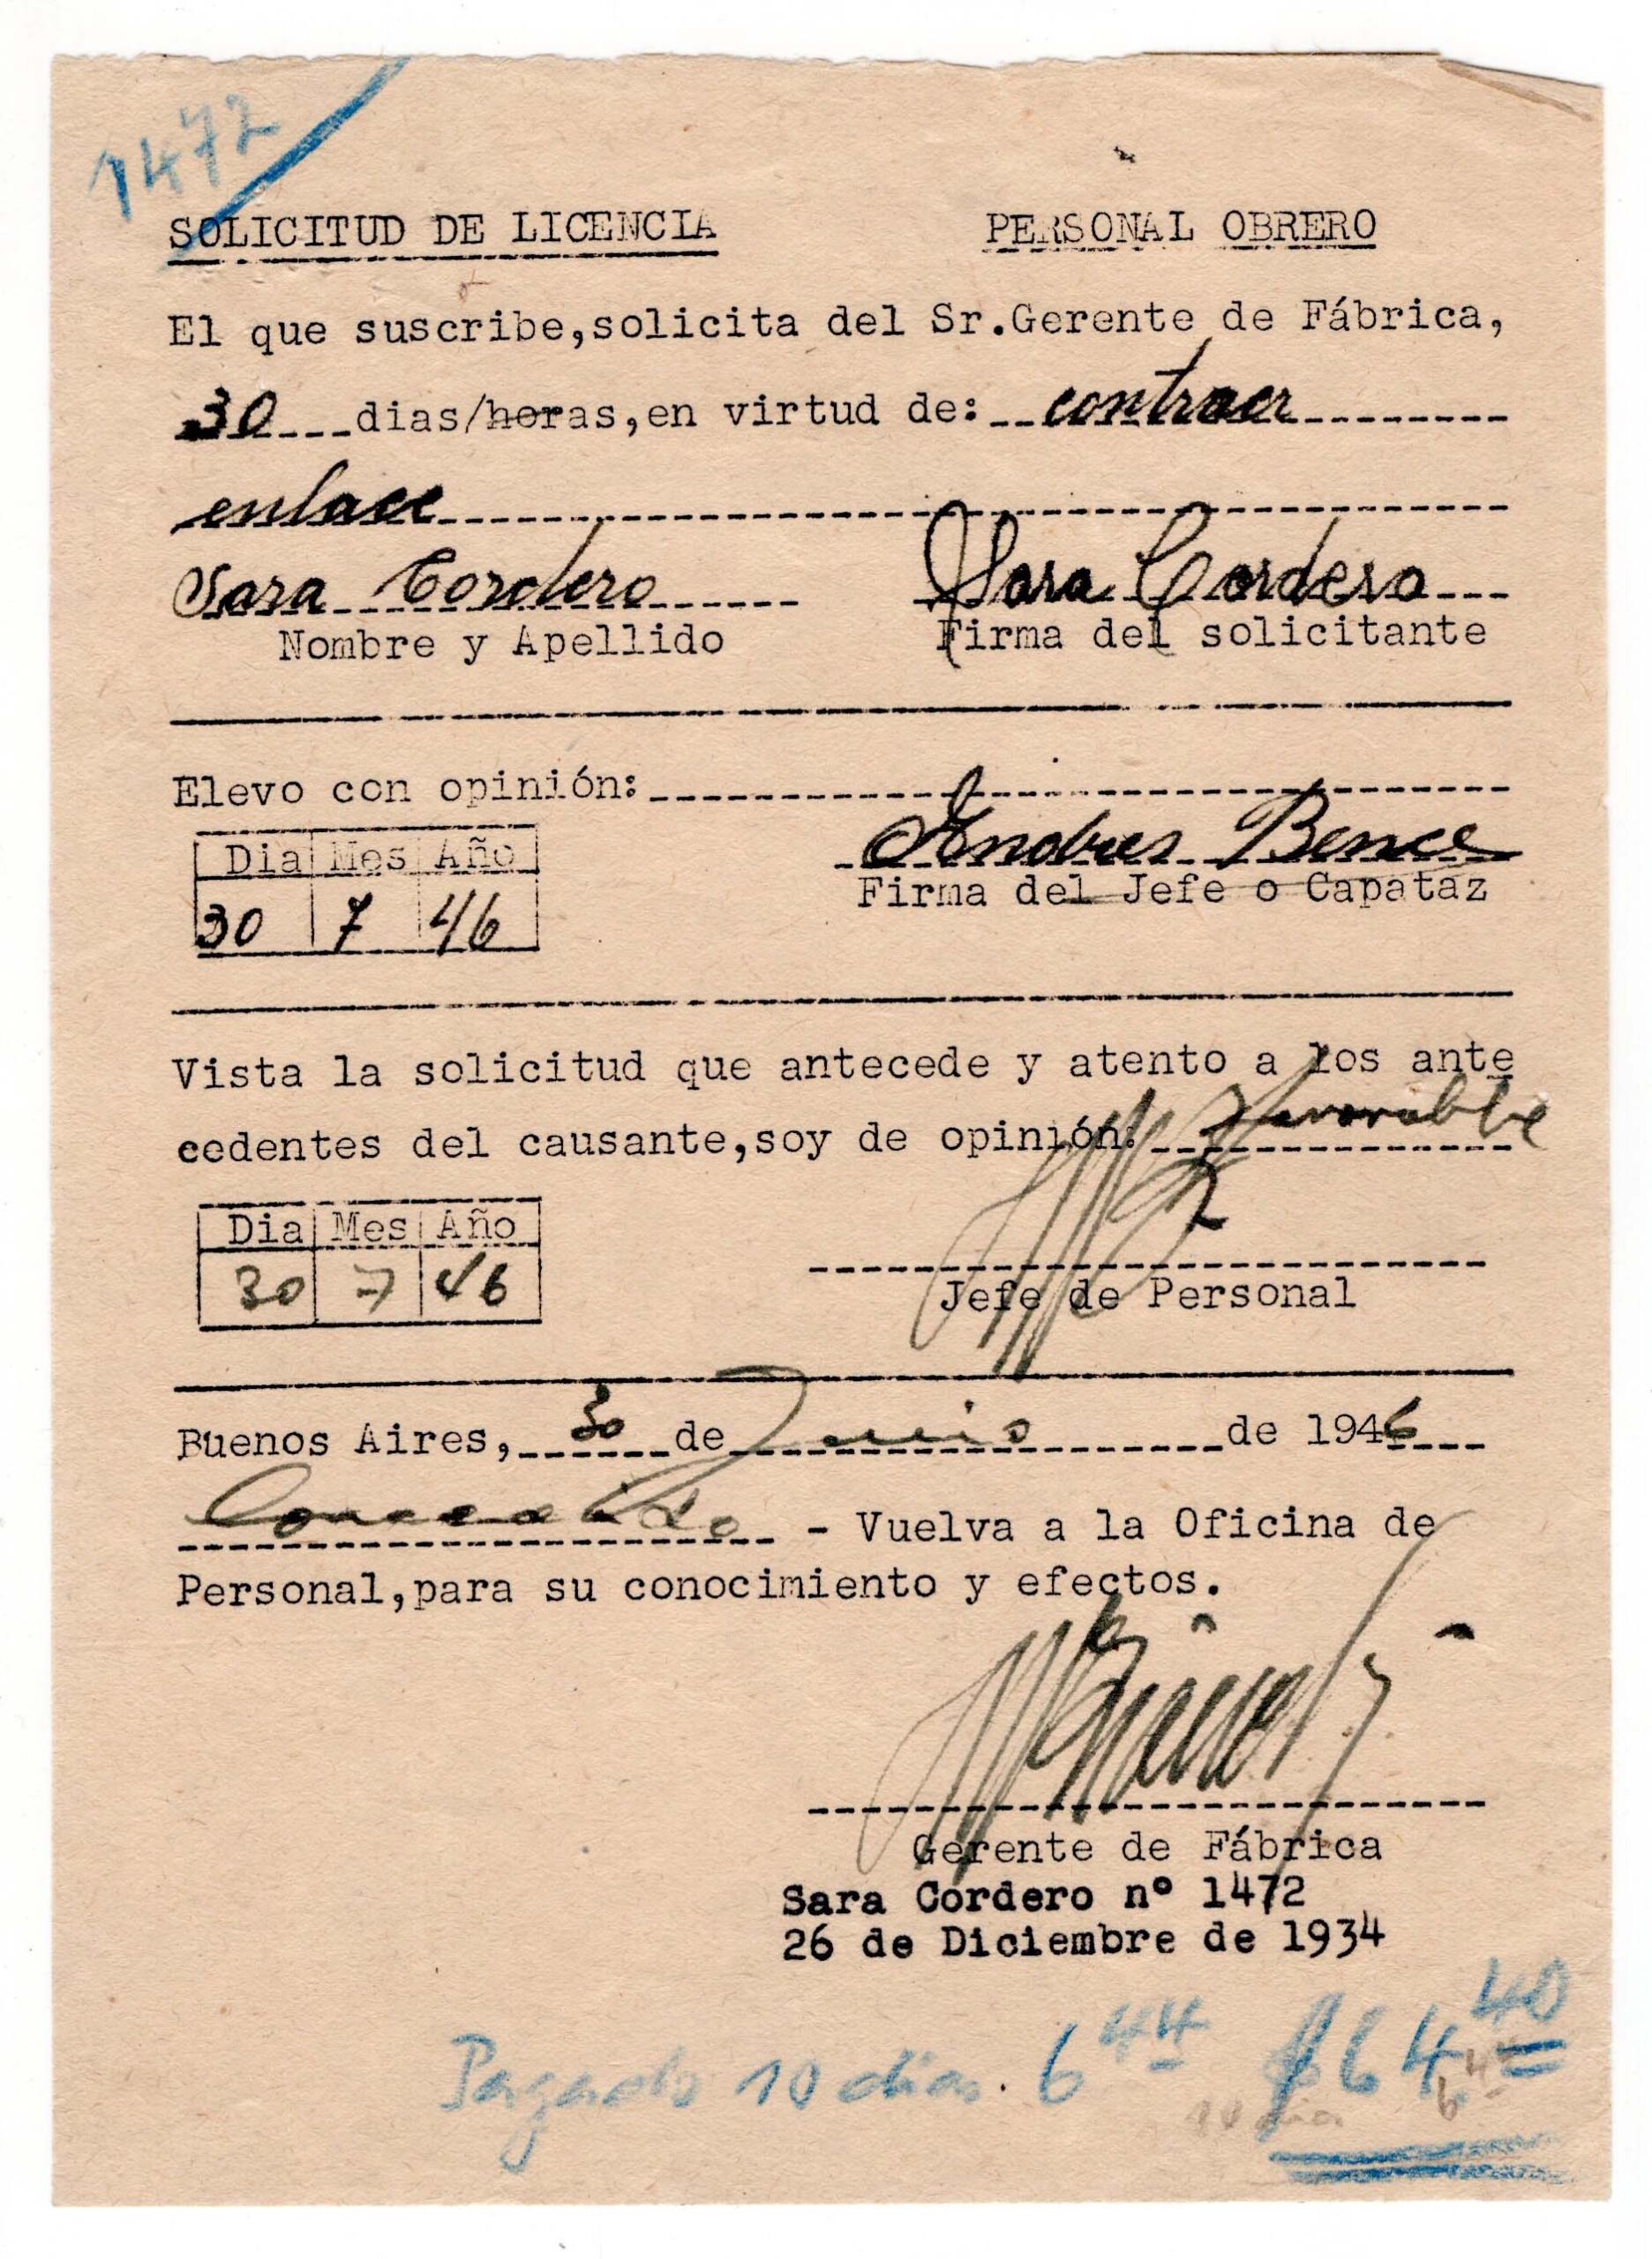 1472
SOLICITUD DE LICENCIA PERSONAL OBRERO
El que suscribe,solicita del Sr.Gerente de Fábrica,
30 dias/horas,en virtud de: contraer
enlace
Sara Cordero Sara Cordero
Nombre y Apellido Firma del solicitante
Elevo con opinión:
Andres Bence
Dia Mes Año Firma del Jefe o Capataz
30 7 46
Vista la solicitud que antecede y atento a los ante
cedentes del causante,soy de opinión: favorable
Dia Mes Año
30 7 46 Jefe de Personal
Buenos Aires, 30 de Junio de 1946
Concedido - Vuelva a la Oficina de
Personal,para su conocimiento y efectos.
Gerente de Fábrica
Sara Cordero nº 1472
26 de Diciembre de 1934
Pagado 10 dias. 6 44 $ 64 40
10 dias 6 44